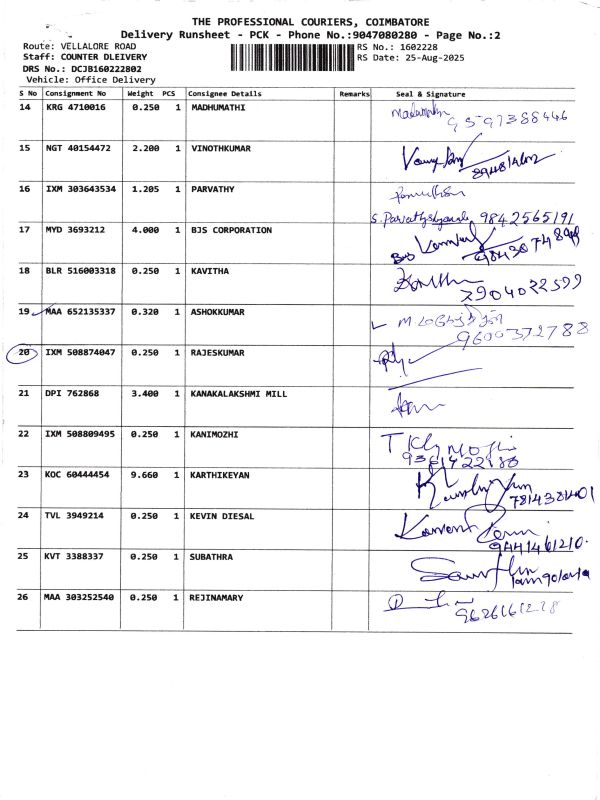 THE PROFESSIONAL COURIERS, COIMBATORE
Delivery Runsheet - PCK - Phone No.:9047080280 - Page No.:2
Route: VELLALORE ROAD RS No.: 1602228
Staff: COUNTER DLEIVERY RS Date: 25-Aug-2025
DRS No.: DCJB160222802
Vehicle: Office Delivery
S No Consignment No Weight PCS Consignee Details Remarks Seal & Signature
14 KRG 4710016 0.250 1 MADHUMATHI
15 NGT 40154472 2.200 1 VINOTHKUMAR
16 IXM 303643534 1.205 1 PARVATHY
S. Parvathy 9842565191
17 MYD 3693212 4.000 1 BJS CORPORATION
18 BLR 516003318 0.250 1 KAVITHA
7904022599
19 MAA 652135337 0.320 1 ASHOKKUMAR
9600372788
20 IXM 508874047 0.250 1 RAJESKUMAR
21 DPI 762868 3.400 1 KANAKALAKSHMI MILL
22 IXM 508809495 0.250 1 KANIMOZHI
23 KOC 60444454 9.660 1 KARTHIKEYAN
7814381401
24 TVL 3949214 0.250 1 KEVIN DIESAL
9441461210.
25 KVT 3388337 0.250 1 SUBATHRA
26 MAA 303252540 0.250 1 REJINAMARY